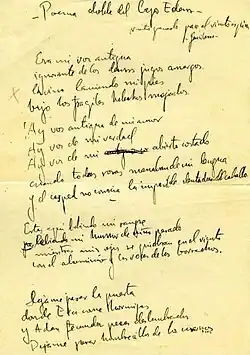 Poema doble del Lago Edem
Nuestro ganado pace, el viento espira
Garcilaso
Era mi voz antigua
ignorante de los densos jugos amargos
lamiendo mis pies
bajo los frágiles helechos mojados.
¡Ay voz antigua de mi amor
Ay voz de mi verdad
Ay voz de mi abierto costado
cuando todas las rosas manaban de mi lengua
y el cesped no conocía la impasible dentadura del caballo
Estás aquí bebiendo mi sangre
bebiendo mi humor de niño pasado
mientras mis ojos se quiebran en el viento
con el aluminio y las voces de los borrachos.
Dejame pasar la puerta
donde Eva come hormigas
y Adan fecunda peces deslumbrados
Dejame pasar hombrecillo de los cuernos